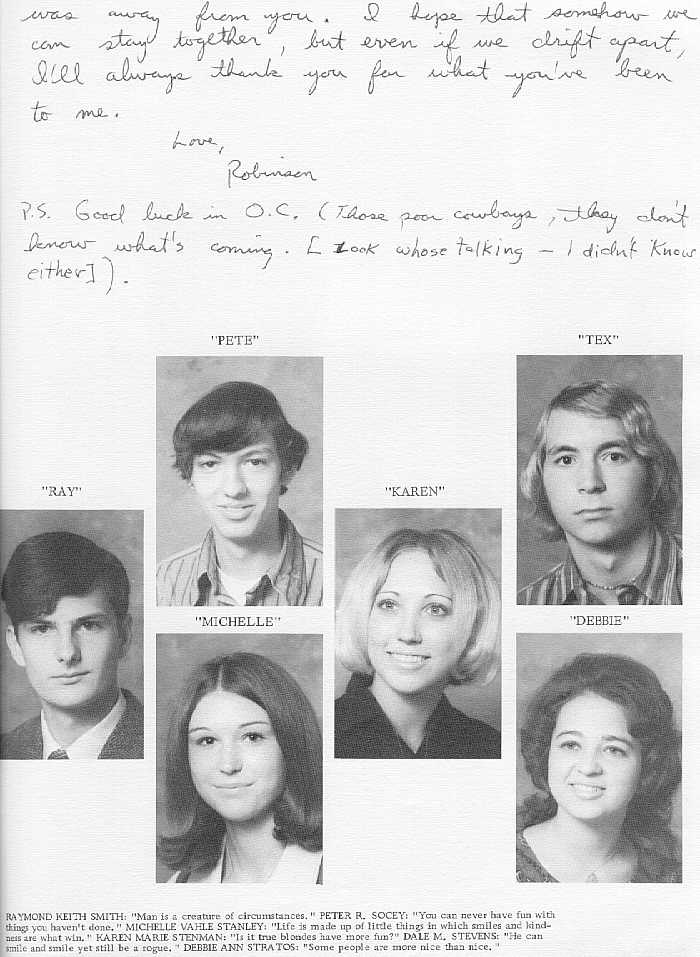 was away from you. I hope that somehow we
can stay together, but even if we drift apart,
I'll always thank you for what you've been
to me.
Love,
Robinson
P.S. Good luck in O.C. (Those poor cowboys, they don't
know what's coming. [Look whose talking – I didn't know
either]).
"PETE"
"TEX"
"RAY"
"KAREN"
"MICHELLE"
"DEBBIE"
RAYMOND KEITH SMITH: "Man is a creature of circumstances." PETER R. SOCEY: "You can never have fun with
things you haven't done." MICHELLE VAHLE STANLEY: "Life is made up of little things in which smiles and kind-
ness are what win." KAREN MARIE STENMAN: "Is it true blondes have more fun?" DALE M. STEVENS: "He can
smile and smile yet still be a rogue." DEBBIE ANN STRATOS: "Some people are more nice than nice."